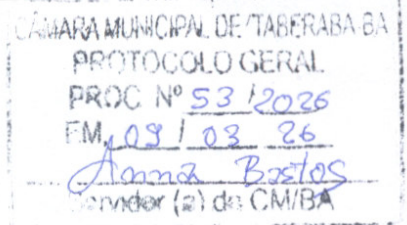 CÂMARA MUNICIPAL DE ITABERABA-BA
PROTOCOLO GERAL
PROC Nº 53 / 2026
EM, 09 / 03 26
Anna Bastos
Servidor (a) da CM/BA